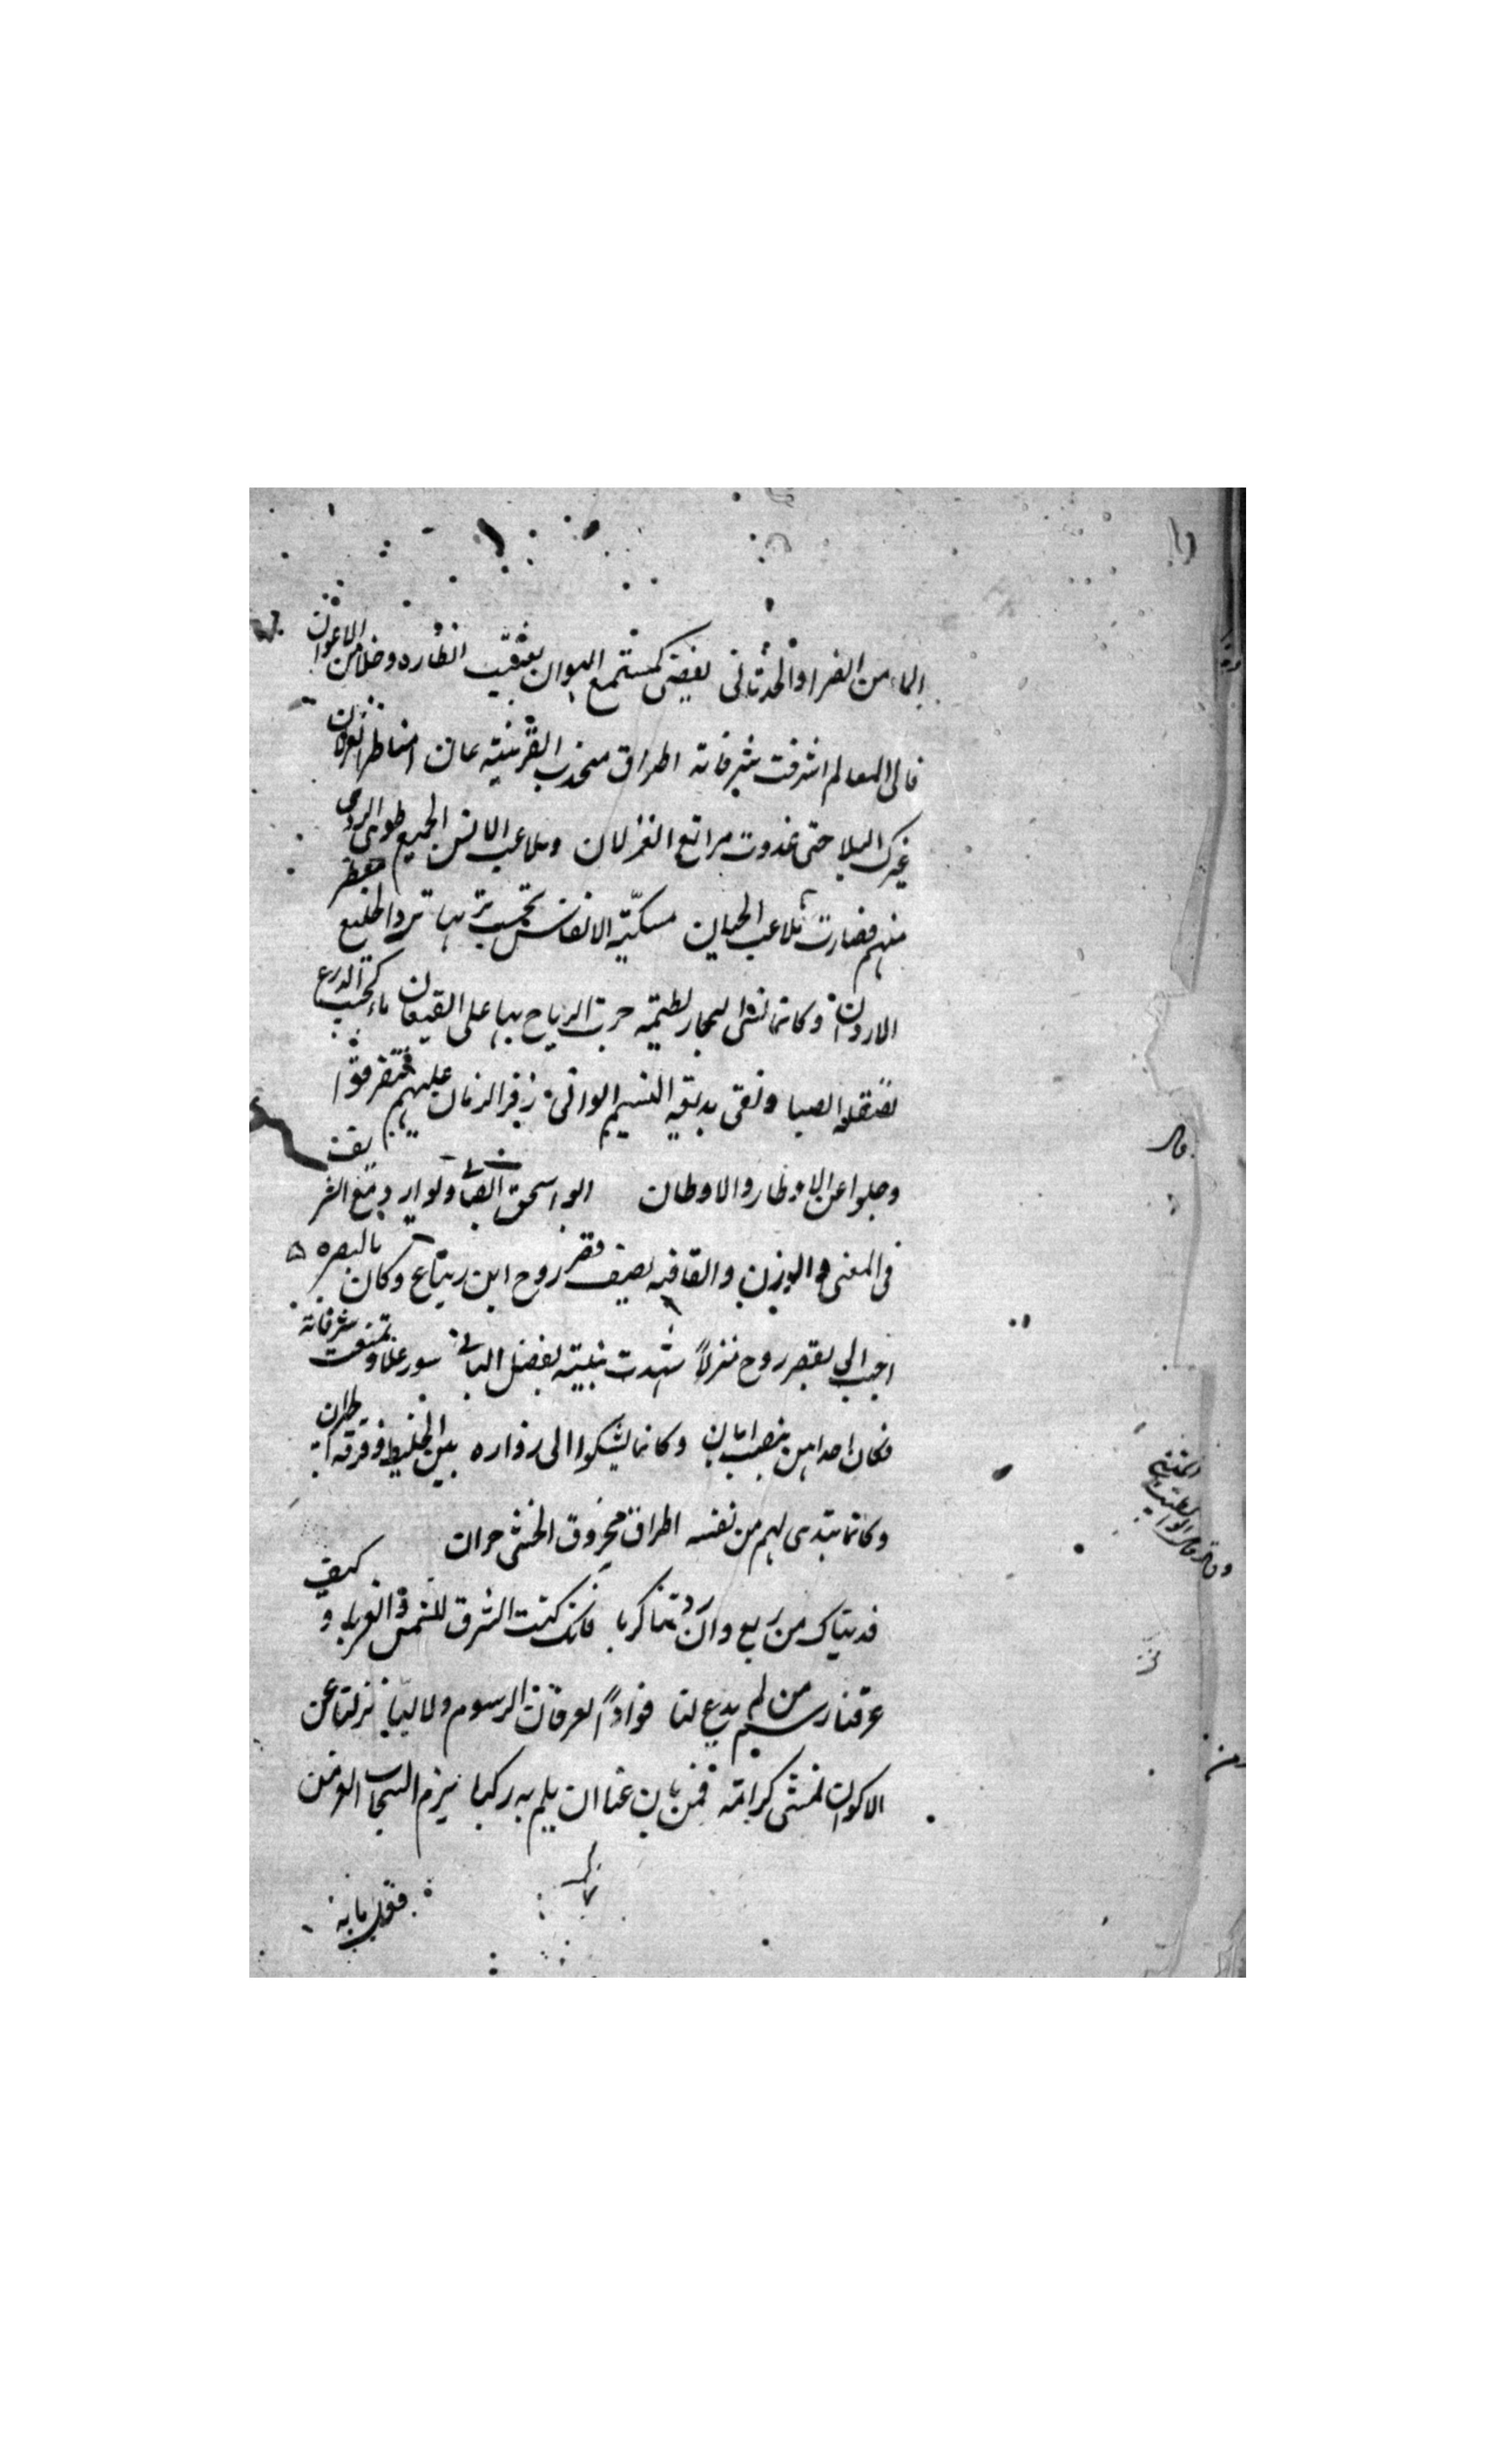 الماء من الضراو الحدثانى يغضى كمستمع الهوان تغيبت انصاره وخلا من الاعوان
فالى المعالم اشرفت شرفاته اطراق منجذب القرينة عان امناظر العزلان
غيرك البلا حتى غدوت مراتع الغزلان وملاعب الانس الجميع طوى الردى
منهم فصارت ملاعب الجنان مسكيّة الانفاس تحسب تربها برد الخليع معطر
الاردان وكانما نشر التجار لطيمة جرت الرياح بها على القيعان ماء كجيب الدرع
تصقله الصبا ونقى يدبجه النسيم الوانى زفر الزمان عليهم فتفرقوا
وجلوا عن الاوطار والاوطان ابو اسحق الصابى
فى المعنى والوزن والقافيه يصف قصر روح ابن رباع وكان بالبصره
احبب الى بقصر روح منزلاً شهدت بنيته بفضل البانى سور علا وتمنعت شرفاته
فكان احداهن هضب ابان وكانما يشكوا الى زواره بين الخليط وفرقة
وكانما يبدى لهم من نفسه اطراق محزوق الحشى حران
فديناك من ربع وان زدتنا كربا فانك كنت الشرق للشمس والغربا وكيف
عرفنا رسم من لم يدع لنا فواداً لعرفان الرسوم ولا لبّا نزلنا عن
الاكوار نمشى كرامة لمن بان عنا ان يلم به ركبا نذم السحاب الغر فى
وقال ابو الطيب المتنبى